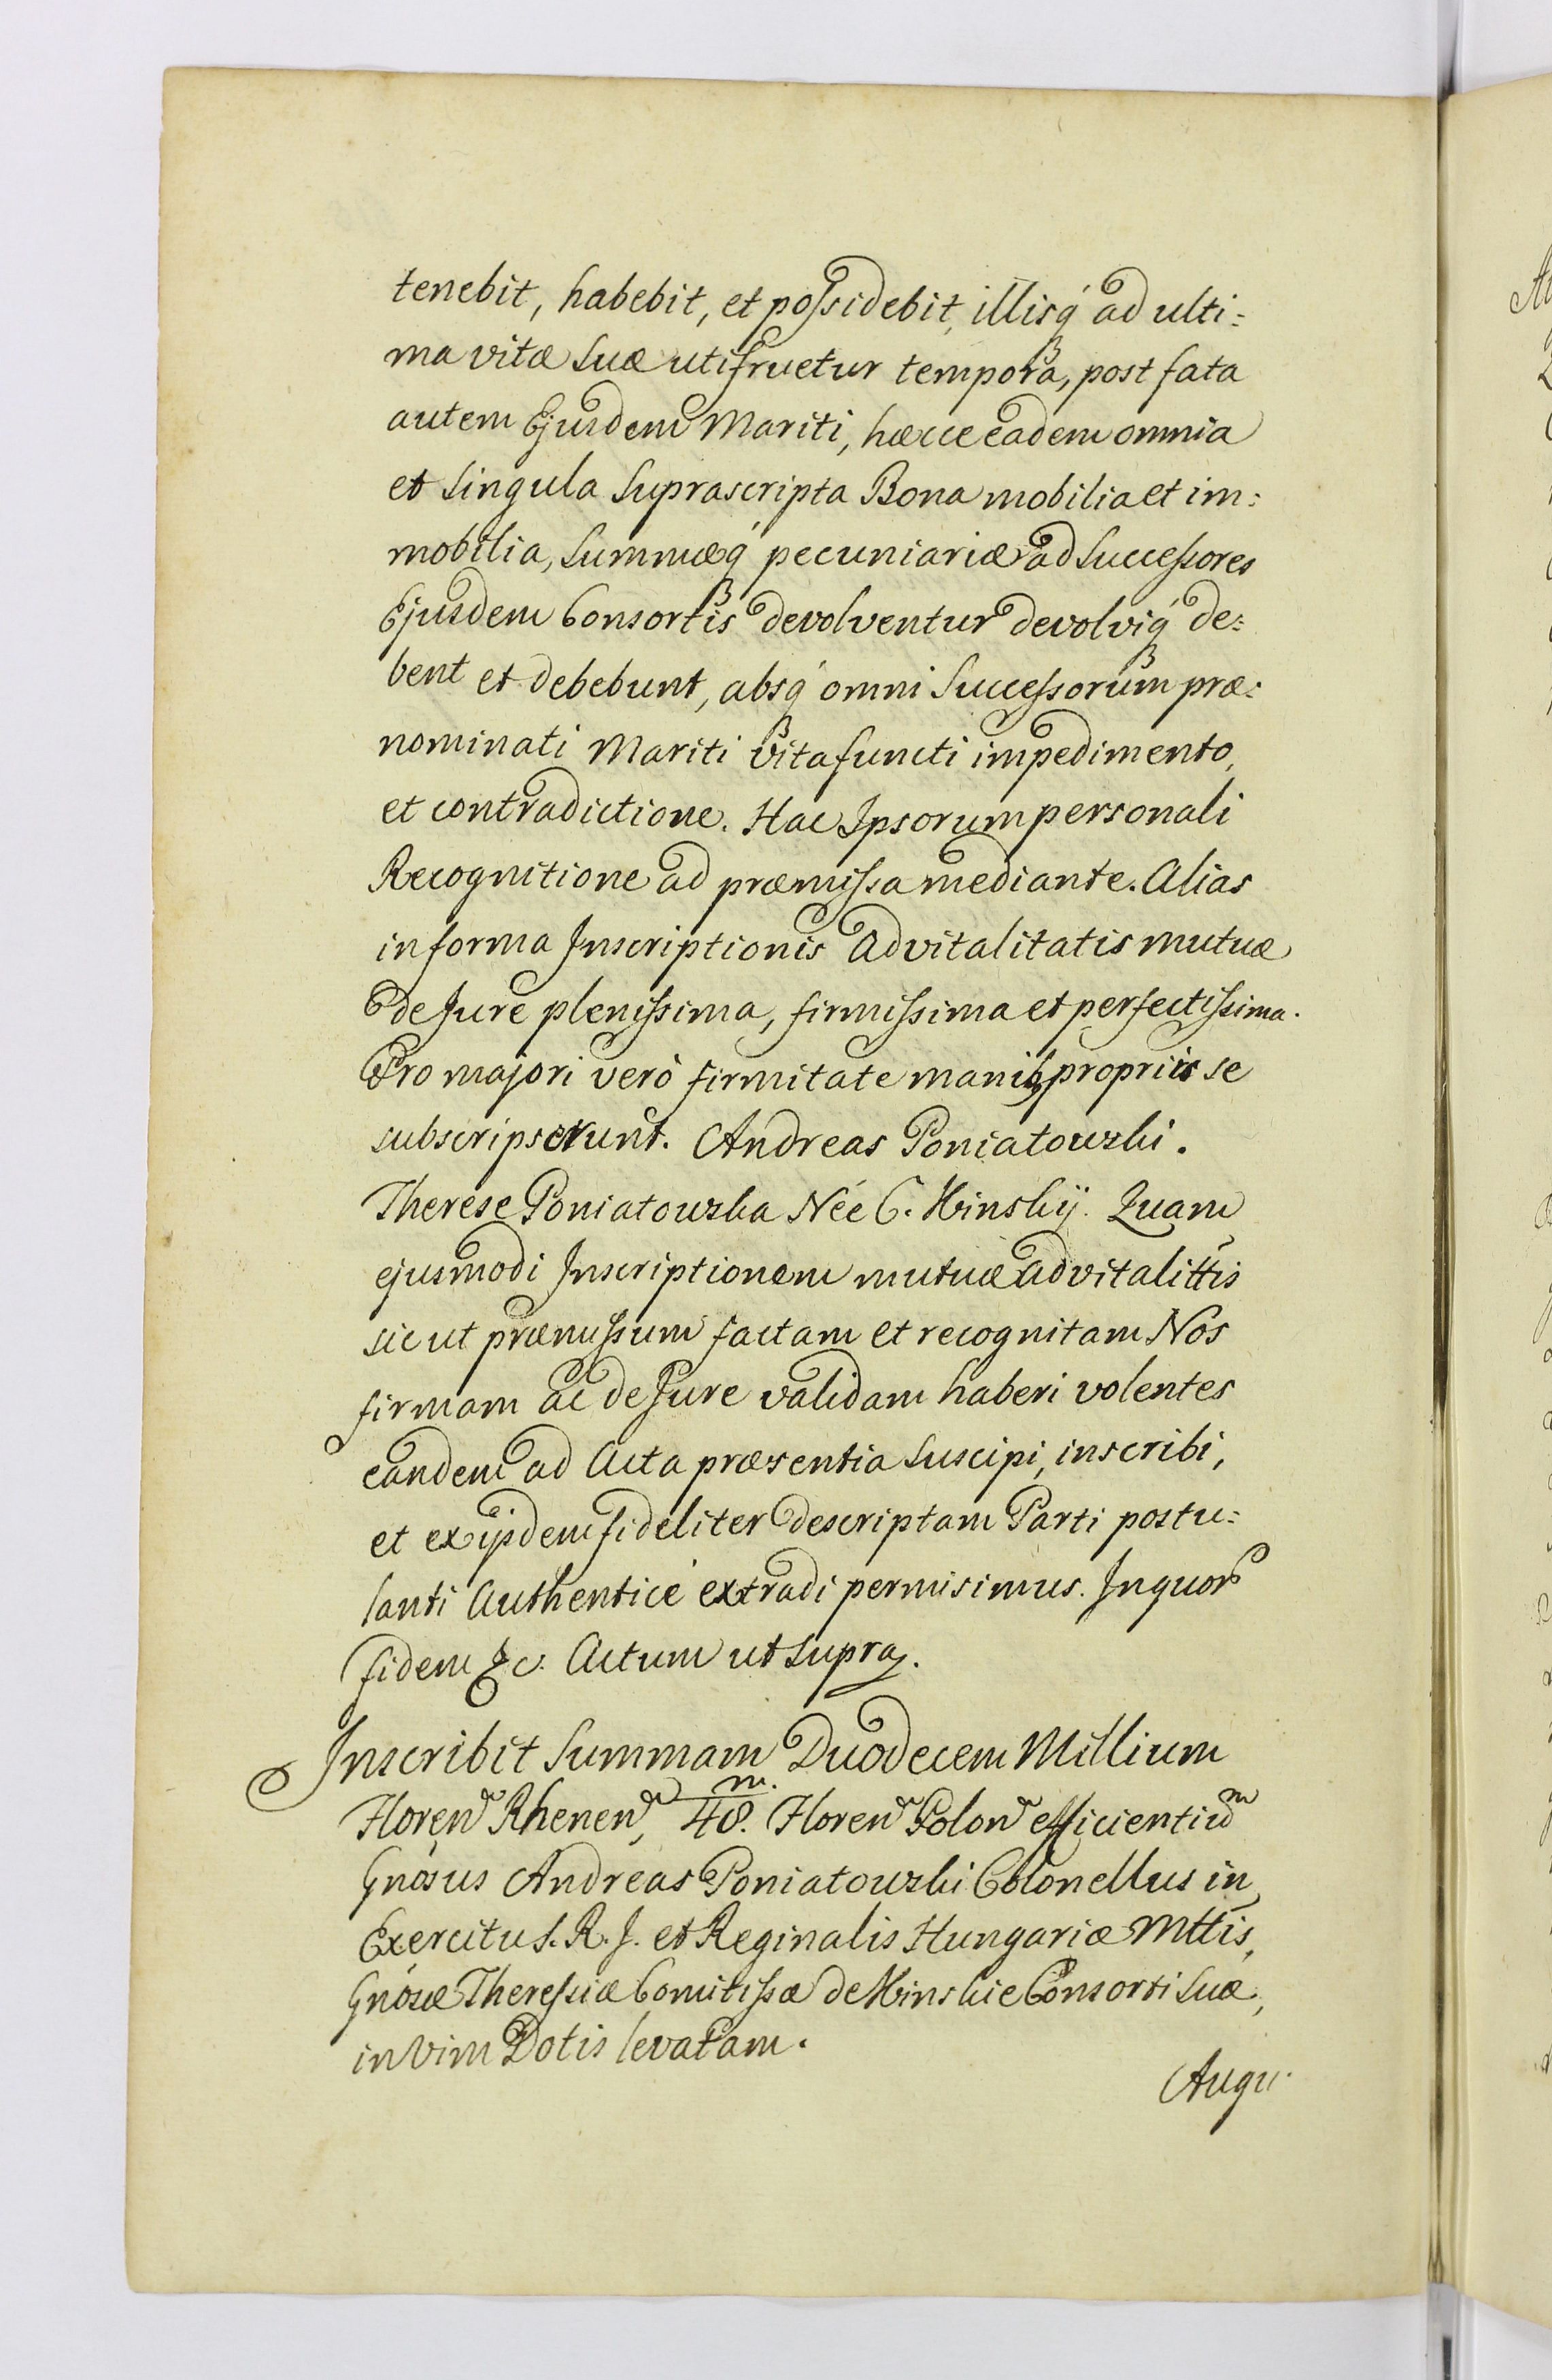 tenebit, habebit, et possidebit, illisq́ʒ ad ulti:
ma vitæ suæ utifruetur tempora, post fata
autem Ejusdem Mariti, hæcce eadem omnia
et singula Suprascripta Bona mobilia et im:
mobilia, Summæq́ʒ pecuniariæ ad Successores
Ejusdem Consortis devolventur devolviq́ʒ de:
bent et debebunt, absq́ʒ omni Successorum præ:
nominati Mariti vita functi impedimento,
et contradictione. Hac Ipsorum personali
Recognitione ad præmissa mediante. Alias
in forma Inscriptionis Advitalitatis mutuæ
de Jure plenissima, firmissima et perfectissima.
Pro majori verò firmitate manibʒ propriis se
subscripserunt. Andreas Poniatowski.
Therese Poniatowska Née C. Kinsky. Quam
ejusmodi Inscriptionem mutuæ advitalittis
sicut præmissum factam et recognitam Nos
firmam ac de Jure validam haberi volentes
eandem ad Acta præsentia suscipi, inscribi,
et ex ijsdem fideliter descriptam Parti postu:
lanti Authenticè extradi permisimus. In quor
fidem &c. Actum ut supra.
Inscribit Summam Duodecem Millium
Floren Rhenen, 48.m. Floren Polon efficientium
Gnosus Andreas Poniatowski Colonellus in
Exercitu S. R. I. et Reginalis Hungariæ Mttis,
Gnosæ Theressiæ Comitissæ de Kinskie Consorti suæ,
in Vim Dotis levatam.
Augu.